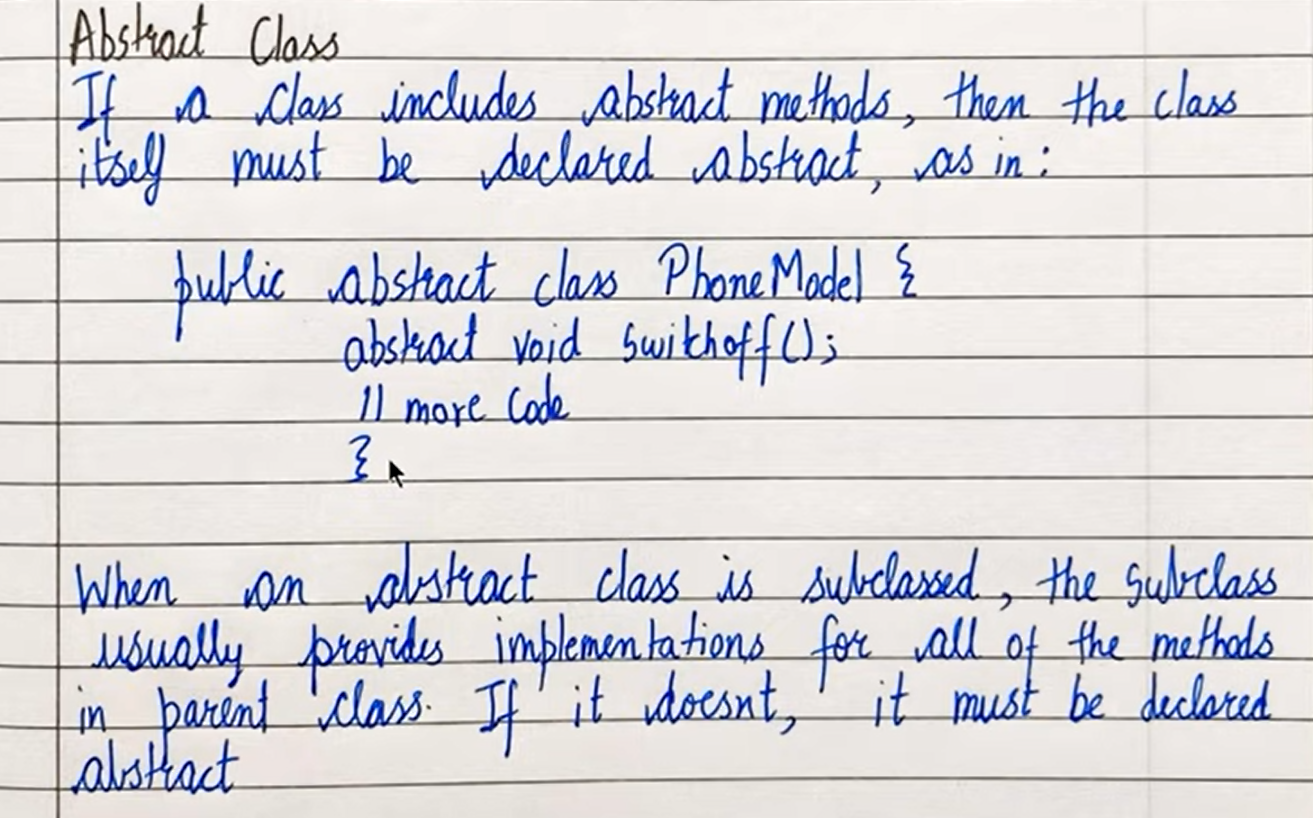 Abstract Class
If a class includes abstract methods, then the class
itself must be declared abstract, as in:
public abstract class PhoneModel {
abstract void switchoff();
// more code
}
When an abstract class is subclassed, the subclass
usually provides implementations for all of the methods
in parent class. If it doesnt, it must be declared
abstract